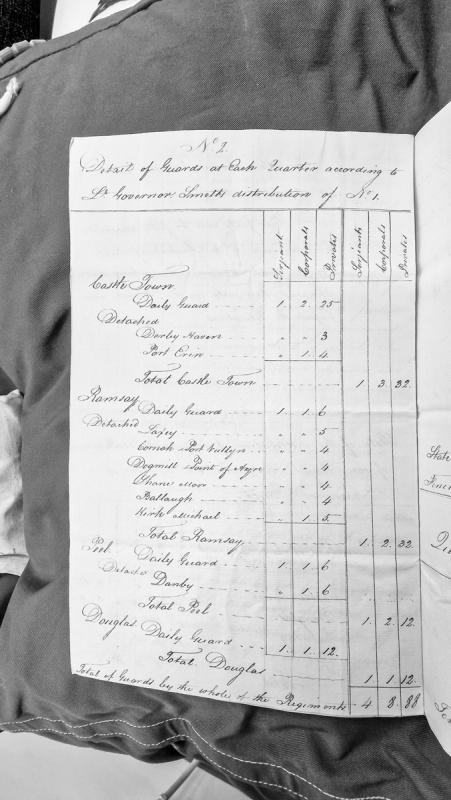 No 2
Detail of Guards at Each Quarter according to
Lt. Governor Smelts distribution of No 1.
Serjeant Corporals Privates Serjeants Corporals Privates
Castle Town
Daily Guard 1 2 25
Detached
Derby Haven " " 3
Port Erin " 1 4
Total Castle Town 1 3 32
Ramsay Daily Guard 1 1 6
Detached Laxey " " 5
Cornah Port " " 4
Dogmill & Point of Ayre " " 4
" " 4
Ballaugh " " 4
Kirk Michael " 1 5
Total Ramsay 1 2 32
Peel Daily Guard 1 1 6
Detached Danby " 1 6
Total Peel 1 2 12
Douglas Daily Guard 1 1 12
Total Douglas 1 1 12
Total of Guards by the whole of the Regiments 4 8 88
State